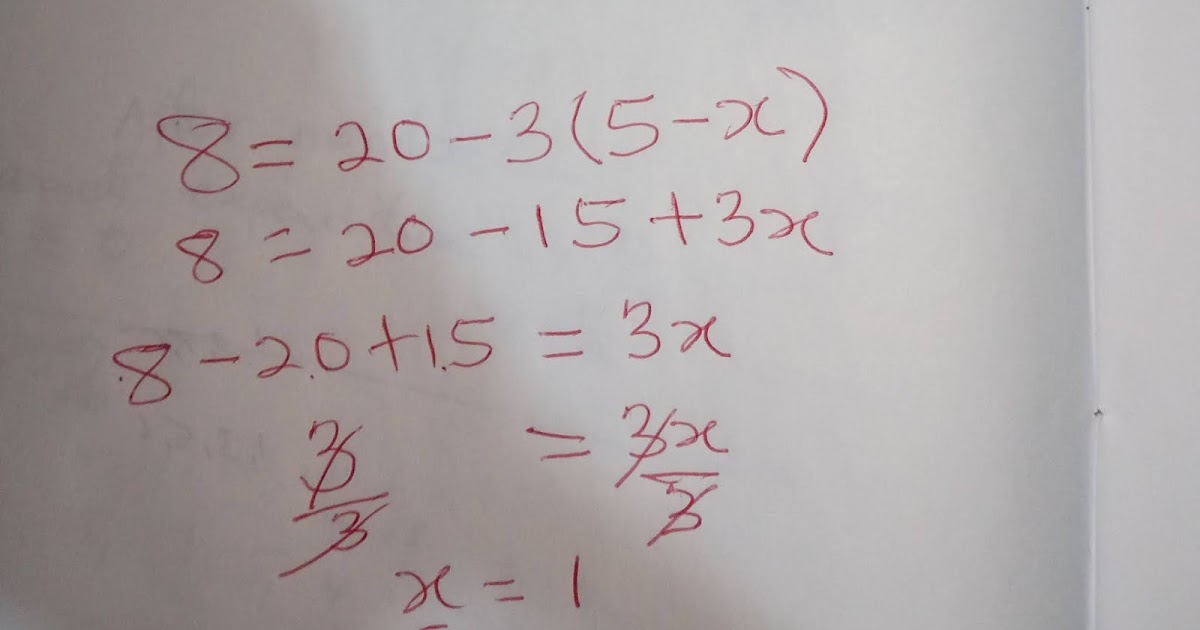 8 = 20 - 3(5 - x)
8 = 20 - 15 + 3x
8 - 20 + 15 = 3x
3/3 = 3x/3
x = 1